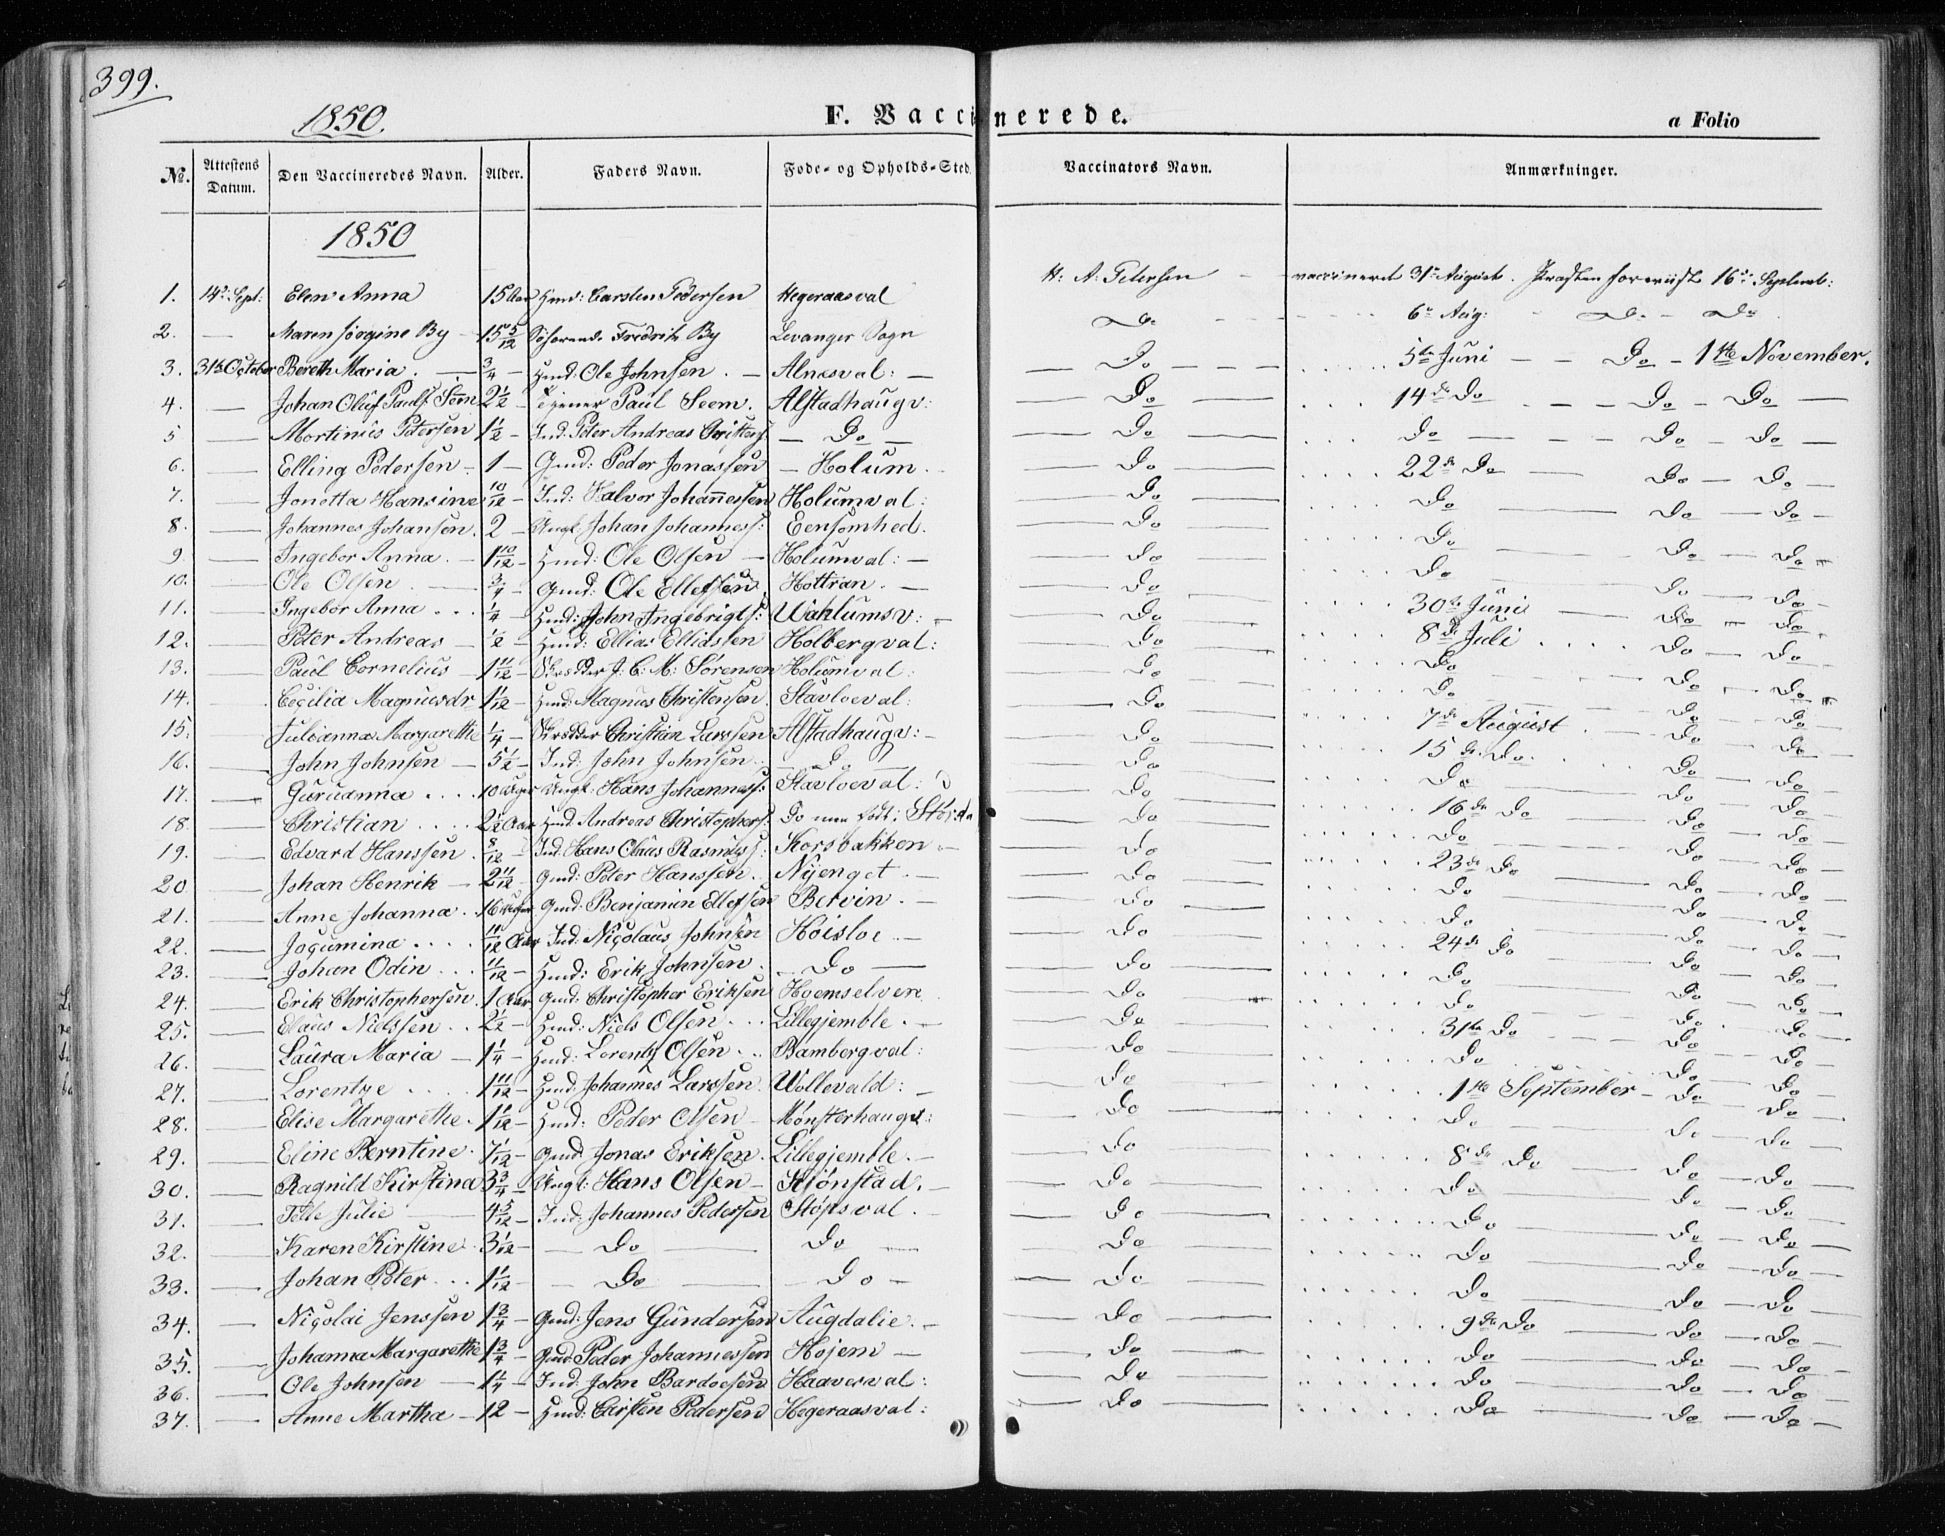 399.
1850. F. Vaccinerede. a Folio
No. Attestens Datum. Den Vaccineredes Navn. Alder. Faders Navn. Føde- og Opholds-Sted. Vaccinators Navn. Anmærkninger.
1850
1. 14de Sept: Elen Anna 15 Aar Hmd: Carsten Pedersen Hegeraasval H: A: Petersen vaccineret 31te August. Præsten foreviist 16de Septembr:
2. — Maren Jørgine By 15 5/12 Fredrik By Levanger Sogn Do 6te Aug: Do Do
3. 31te October Bereth Maria. 3/4 Hmd: Ole Johnsen. Alnesval: Do 5te Juni Do 1ste November.
4. — Johan Oluf Pauls. Seem 2 1/2 Tjener Paul Seem. Alstadhaugv: Do 14de Do Do Do
5 — Mortinus Petersen 1 1/2 Ind: Peter Andreas Do Do Do Do Do
6. — Elling Pedersen 1 Gmd: Peder Jonassen Holum. Do 22de Do Do Do
7. — Jonetta Hansine 10/12 Ind: Halvor Johannessen Holumval: Do Do Do Do
8. — Johannes Johansen. 2 Ungk: Johan Johanness: Eensomhed. Do Do Do Do
9. — Ingebor Anna. 1 10/12 Hmd: Ole Olsen Holumval: Do Do Do Do
10. — Ole Olsen 3/4 Gmd: Ole Ellefsen Hottran. Do 30te Juni Do Do
11. — Ingebor Anna 1/4 Hmd: John Ingebrigts: Wahlumsv: Do 8de Juli Do Do
12. — Peter Andreas 1/2 Hmd: Ellias Ellidssen Holbergval: Do Do Do Do
13. — Paul Cornelius 1 11/12 J. C. M. Sørensen Holumval: Do Do Do Do
14. — Cecilia Magnusdr 1 1/12 Hmd: Magnus Christensen. Stavloeval: Do 7de August Do Do
15. — Julianna Margarethe 1/4 Christian Larssen Alstadhaugv: Do 15de Do. Do Do
16. — John Johnsen 5 1/2 Ind: John Johnsen Do Do Do Do Do
17. — Guruanna 10 Uger Ungk: Hans Johanness: Stavloeval: Do 16de Do Do Do
18 — Christian 2 1/2 Aar Hmd. Andreas Christophers: Do men født i Do Do Do Do
19. — Edvard Hanssen 8/12 Ind: Hans Claus Rasmuss: Korsbakken Do 23de Do Do Do
20 — Johan Henrik 2 11/12 Gmd: Peter Hanssen Nyenget. Do Do Do Do
21. — Anne Johanna. 16 Uger Gmd: Benjamin Ellefsen Bervin. Do Do Do Do
22. — Jogumina 11/12 Aar Ind: Nicolaus Johnsen Høisloe Do 24de Do Do Do
23. — Johan Odin 11/12 Hmd: Erik Johnsen. Do Do Do Do Do
24. — Erik Christophersen. 1 Aar Gmd: Christopher Eriksen Hoemselven Do Do Do Do
25. — Claus Nielssen 2 1/2 Hmd: Niels Olsen Lillegjemble. Do 31te Do Do Do
26. — Laura Maria 1 1/4 Hmd: Lorents Olsen Bambergval: Do Do Do Do
27. — Lorentze 1 11/12 Hmd: Johannes Larssen Wollevald: Do 1ste September Do Do
28. — Elise Margarethe. 1 1/12 Hmd: Peder Olsen Mønsterhaugv: Do Do Do Do
29. — Eline Berntine. 7 1/12 Gmd Jonas Eriksen Lillegjemble. Do 8de Do Do Do
30. — Ragnild Kirstina 3 3/4 Ungk: Hans Olsen Kjønstad. Do Do Do Do
31. — Pelle Julie 4 5/12 Ind: Johannes Pedersen Stopsval. Do Do Do Do
32. — Karen Kirstine 3 1/12 Do Do Do Do Do Do
33. — Johan Peter 1 1/12 Do Do Do Do Do Do
34. — Nicolai Jenssen 1 3/4 Gmd: Jens Gundersen Augdalie. Do 9de Do Do Do
35. — Johanna Margarethe 1 3/4 Gmd: Peder Johannessen Højem Do Do Do Do
36. — Ole Johnsen 1 1/4 Ind: John Bardoesen Haavesval: Do Do Do Do
37. — Anne Martha 12 Hmd: Carsten Pedersen Hegeraasval: Do Do Do Do